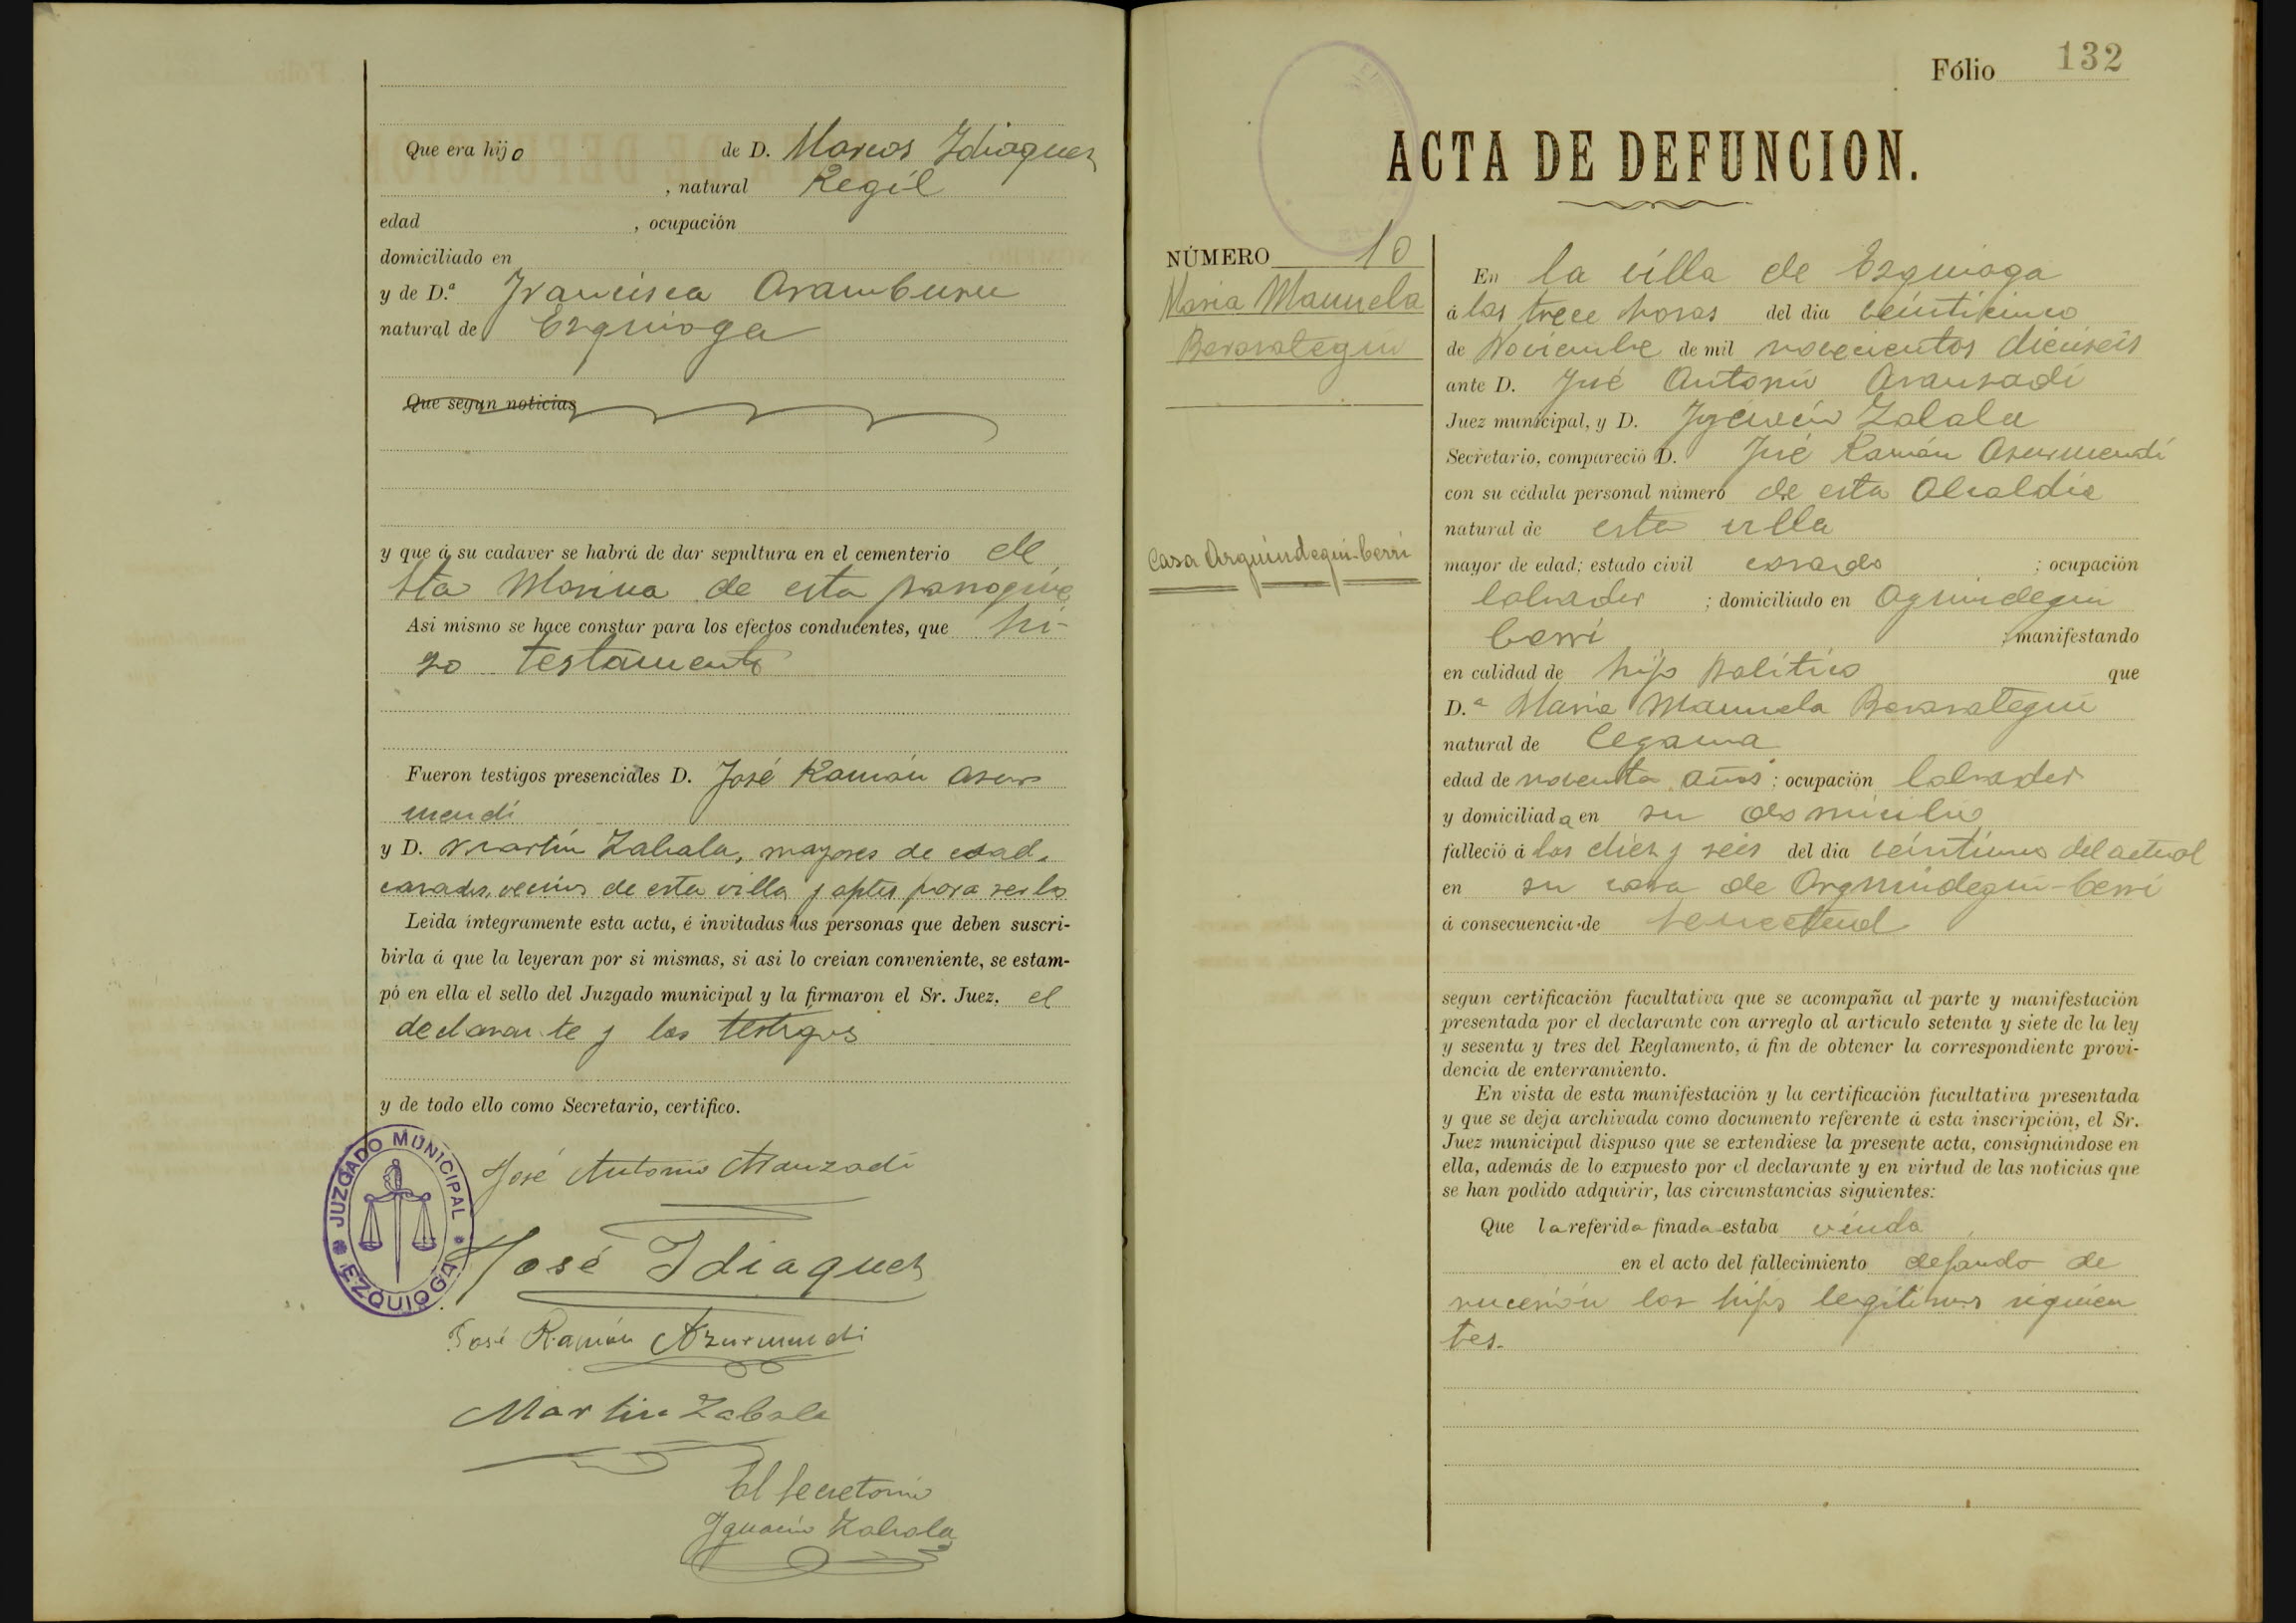 Que era hijo de D. Marcos Ydiaquez
, natural Regil
edad , ocupación
domiciliado en
y de D.ª Francisca Aramburu
natural de Ezquioga
Que segun noticias
y que á su cadaver se habrá de dar sepultura en el cementerio de
Sta Marina de esta parroquia
Asi mismo se hace constar para los efectos conducentes, que hi-
zo testamento
Fueron testigos presenciales D. José Ramón Asur
mendi
y D. Martín Zabala, mayores de edad,
casados, vecinos de esta villa y aptos para serlo
Leida integramente esta acta, é invitadas las personas que deben suscri-
birla á que la leyeran por si mismas, si asi lo creian conveniente, se estam-
pó en ella el sello del Juzgado municipal y la firmaron el Sr. Juez, el
declarante y los testigos
y de todo ello como Secretario, certifico.
JUZGADO MUNICIPAL
EZQUIOGA
José Antonio Aranzadi
José Ydiaquez
José Ramón Azurmendi
Martin Zabala
El Secretario
Ygnacio Zabala
Fólio 132
ACTA DE DEFUNCION.
NÚMERO 10
Maria Manuela
Berasategui
Casa Arguindegui-berri
En la villa de Ezquioga
á las trece horas del dia veinticinco
de Noviembre de mil novecientos dieciseis
ante D. José Antonio Aransadi
Juez municipal, y D. Ygnacio Zabala
Secretario, compareció D. José Ramón Asurmendi
con su cédula personal número de esta Alcaldia
natural de esta villa
mayor de edad; estado civil casado ; ocupación
labrador ; domiciliado en Aguindegui
berri ; manifestando
en calidad de hijo político que
D.ª Maria Manuela Berasategui
natural de Cegama
edad de noventa años ; ocupación labrador
y domiciliada en su domicilio
falleció á las diez y seis del dia del actual
en su casa de Arguindegui-berri
á consecuencia de senectud
segun certificación facultativa que se acompaña al parte y manifestación
presentada por el declarante con arreglo al artículo setenta y siete de la ley
y sesenta y tres del Reglamento, á fin de obtener la correspondiente provi-
dencia de enterramiento.
En vista de esta manifestación y la certificación facultativa presentada
y que se deja archivada como documento referente á esta inscripción, el Sr.
Juez municipal dispuso que se extendiese la presente acta, consignándose en
ella, además de lo expuesto por el declarante y en virtud de las noticias que
se han podido adquirir, las circunstancias siguientes:
Que la referida finada estaba viuda
en el acto del fallecimiento dejando de
sucesión los hijos legítimos siguien
tes.